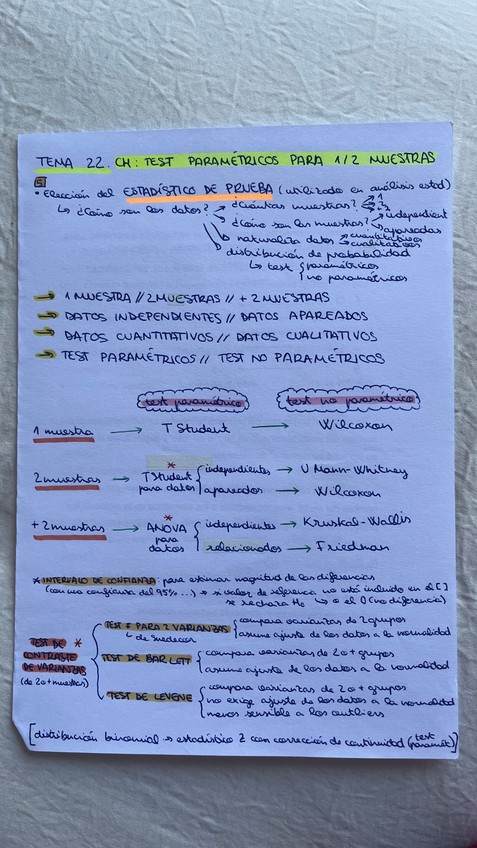 TEMA 22. CH: TEST PARAMÉTRICOS PARA 1/2 MUESTRAS
• Elección del ESTADÍSTICO DE PRUEBA (utilizado en análisis estad)
↳ ¿Cómo son los datos? → ¿cuántas muestras? 1 2 +2
→ ¿cómo son las muestras? independient apareadas
→ naturaleza datos cuantitativos cualitativos
→ distribución de probabilidad
↳ test { paramétricos
no paramétricos
→ 1 MUESTRA // 2 MUESTRAS // + 2 MUESTRAS
→ DATOS INDEPENDIENTES // DATOS APAREADOS
→ DATOS CUANTITATIVOS // DATOS CUALITATIVOS
→ TEST PARAMÉTRICOS // TEST NO PARAMÉTRICOS
test paramétrico test no paramétrico
1 muestra → T Student → Wilcoxon
*
2 muestras → T Student { independientes → U Mann-Whitney
para datos apareados → Wilcoxon
*
+ 2 muestras → ANOVA { independientes → Kruskal-Wallis
para datos relacionados → Friedman
* INTERVALO DE CONFIANZA: para estimar magnitud de las diferencias
(con una confianza del 95%...) → si valor de referencia no está incluido en el [ ]
se rechaza H₀ ↳ o el 0 (no diferencia)
TEST DE * CONTRASTE DE VARIANZAS (de 2 o + muestras)
TEST F PARA 2 VARIANZAS { compara varianzas de 2 grupos
↳ de Snedecor asume ajuste de los datos a la normalidad
TEST DE BARLETT { compara varianzas de 2 o + grupos
asume ajuste de los datos a la normalidad
TEST DE LEVENE { compara varianzas de 2 o + grupos
no exige ajuste de los datos a la normalidad
menos sensible a los outliers
[distribución binomial → estadístico Z con corrección de continuidad (test paramét)]